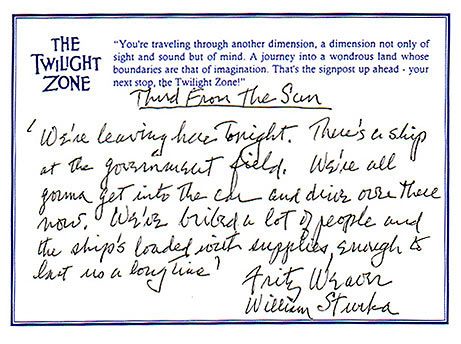 THE
TWILIGHT
ZONE
"You're traveling through another dimension, a dimension not only of
sight and sound but of mind. A journey into a wondrous land whose
boundaries are that of imagination. That's the signpost up ahead - your
next stop, the Twilight Zone!"
Third From The Sun
'We're leaving here Tonight. There's a ship
at the government field. We're all
gonna get into the car and drive over there
now. We've bribed a lot of people and
the ship's loaded with supplies, enough to
last us a long time'
Fritz Weaver
William Sturka